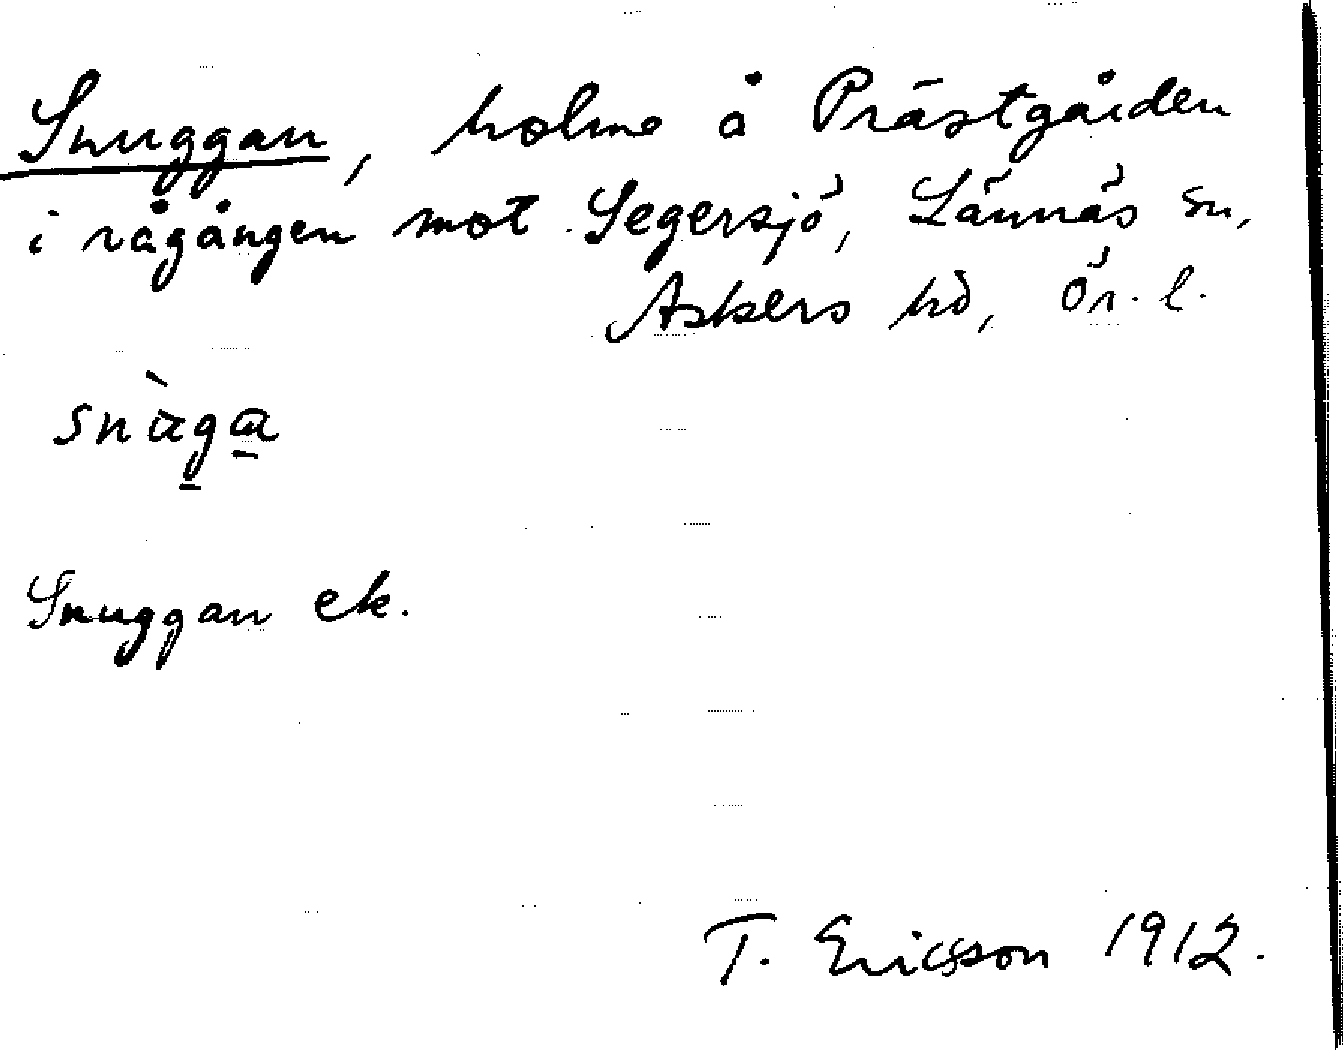 Snuggan, holme å Prästgården
i rågången mot Segersjö, Lännäs sn,
Askers hd, Ör. l.
Snuggan ek.
T. Ericsson 1912.